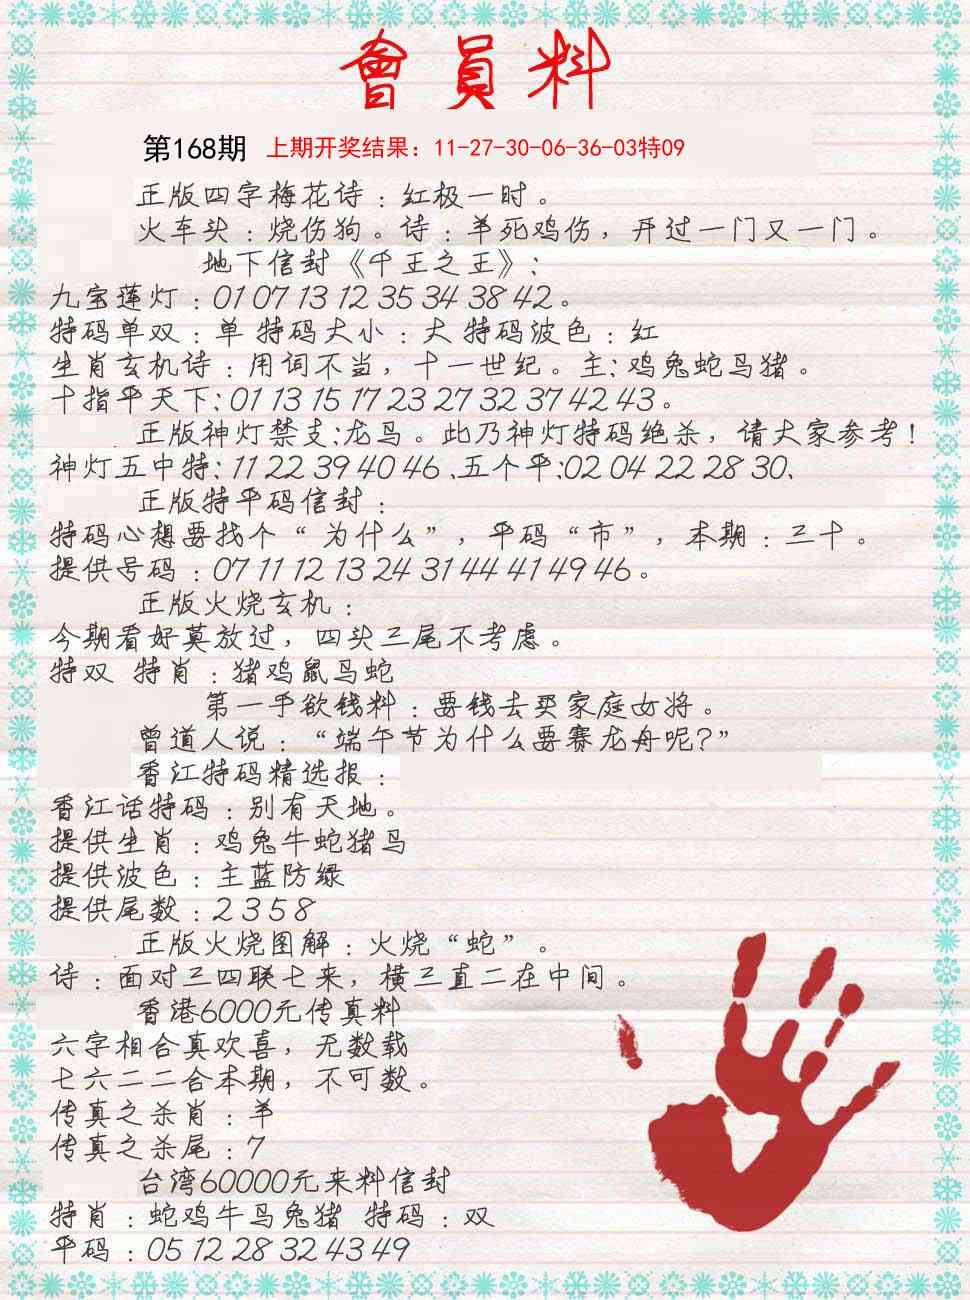 會員料
第168期 上期开奖结果：11-27-30-06-36-03特09
正版四字梅花诗：红极一时。
火车头：烧伤狗。诗：羊死鸡伤，开过一门又一门。
地下信封《千王之王》：
九宝莲灯：01 07 13 12 35 34 38 42。
特码单双：单 特码大小：大 特码波色：红
生肖玄机诗：用词不当，十一世纪。主：鸡兔蛇马猪。
十指平天下：01 13 15 17 23 27 32 37 42 43。
正版神灯禁支：龙鸟。此乃神灯特码绝杀，请大家参考！
神灯五中特：11 22 39 40 46、五个平：02 04 22 28 30、
正版特平码信封：
特码心想要找个“为什么”，平码“市”，本期：三十。
提供号码：07 11 12 13 24 31 44 41 49 46。
正版火烧玄机：
今期看好莫放过，四头三尾不考虑。
特双 特肖：猪鸡鼠马蛇
第一手欲钱料：要钱去买家庭女将。
曾道人说：“端午节为什么要赛龙舟呢？”
香江特码精选报：
香江话特码：别有天地。
提供生肖：鸡兔牛蛇猪马
提供波色：主蓝防绿
提供尾数：2 3 5 8
正版火烧图解：火烧“蛇”。
诗：面对三四联七来，横三直二在中间。
香港6000元传真料
六字相合真欢喜，无数载
七六二二合本期，不可数。
传真之杀肖：羊
传真之杀尾：7
台湾60000元来料信封
特肖：蛇鸡牛马兔猪 特码：双
平码：05 12 28 32 43 49